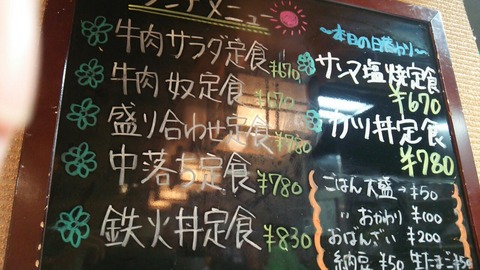 ランチメニュー
牛肉サラダ定食 ¥670
牛肉奴定食 ¥670
盛り合わせ定食 ¥780
中落ち定食 ¥780
鉄火丼定食 ¥830
~本日の日替わり~
サンマ塩焼定食
¥670
カツ丼定食
¥780
ごはん大盛→¥50
〃 おかわり ¥100
おばんざい ¥200
納豆 ¥50 生たまご¥50